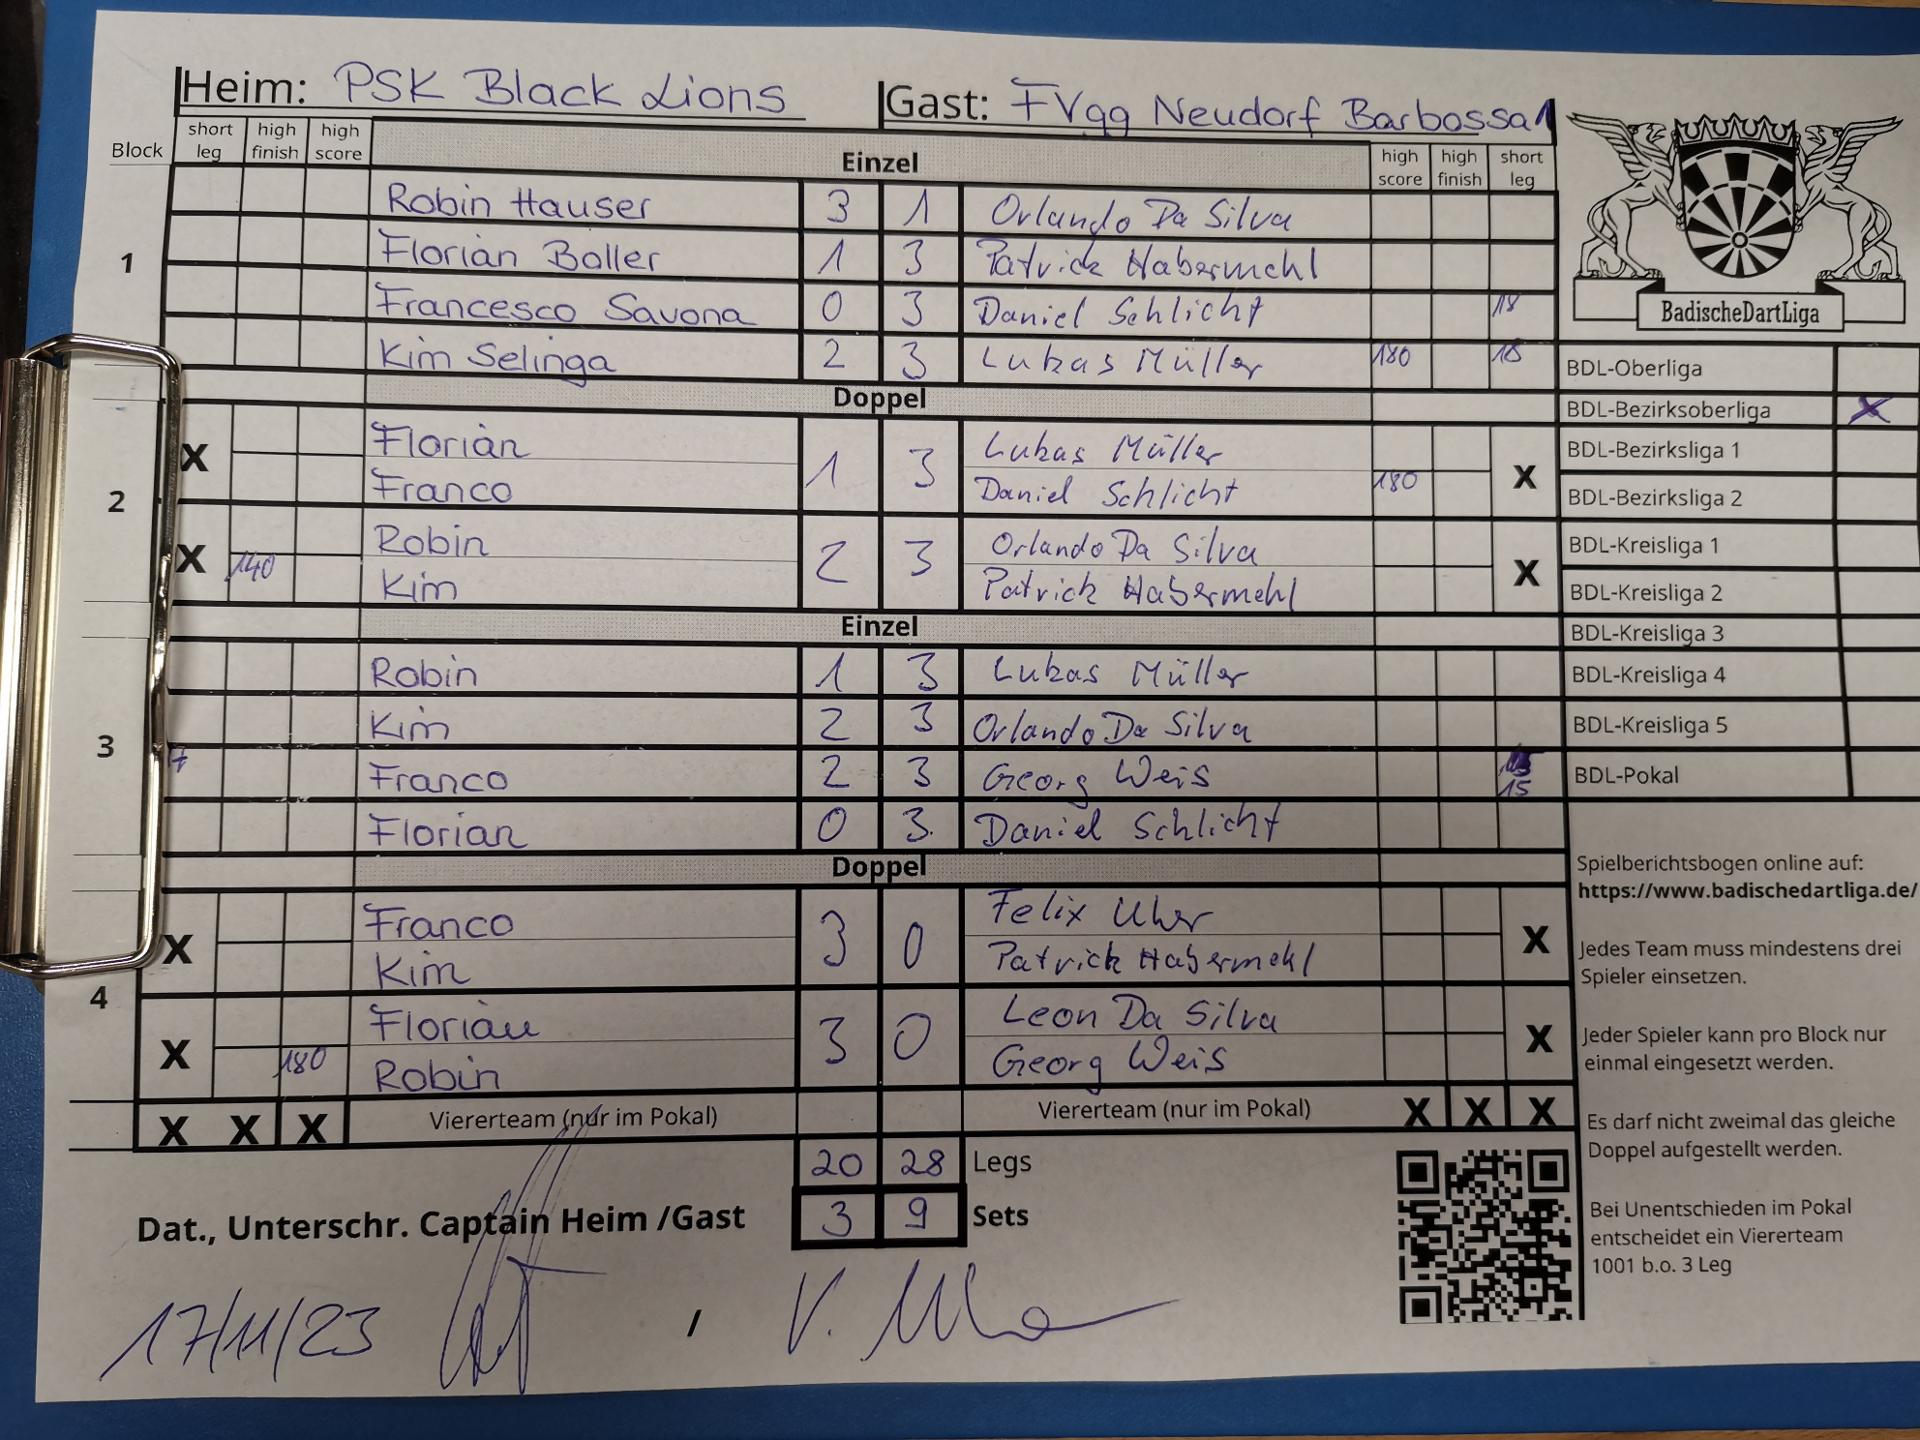 Heim: PSK Black Lions Gast: FVgg Neudorf Barbossa 1
Block short leg high finish high score Einzel high score high finish short leg
1
Robin Hauser 3 1 Orlando Da Silva
Florian Boller 1 3 Patrick Habermehl
Francesco Savona 0 3 Daniel Schlicht 18
Kim Selinga 2 3 Lukas Müller 180 18
Doppel
2
X Florian 1 3 Lukas Müller X
Franco Daniel Schlicht 180
X Robin 2 3 Orlando Da Silva X
140 Kim Patrick Habermehl
Einzel
3
Robin 1 3 Lukas Müller
Kim 2 3 Orlando Da Silva
17 Franco 2 3 Georg Weis 15
Florian 0 3 Daniel Schlicht
Doppel
4
X Franco 3 0 Felix Uher X
Kim Patrick Habermehl
X Florian 3 0 Leon Da Silva X
180 Robin Georg Weis
X X X Viererteam (nur im Pokal) Viererteam (nur im Pokal) X X X
20 28 Legs
Dat., Unterschr. Captain Heim /Gast 3 9 Sets
17/11/23 /
BadischeDartLiga
BDL-Oberliga
BDL-Bezirksoberliga X
BDL-Bezirksliga 1
BDL-Bezirksliga 2
BDL-Kreisliga 1
BDL-Kreisliga 2
BDL-Kreisliga 3
BDL-Kreisliga 4
BDL-Kreisliga 5
BDL-Pokal
Spielberichtsbogen online auf:
https://www.badischedartliga.de/
Jedes Team muss mindestens drei
Spieler einsetzen.
Jeder Spieler kann pro Block nur
einmal eingesetzt werden.
Es darf nicht zweimal das gleiche
Doppel aufgestellt werden.
Bei Unentschieden im Pokal
entscheidet ein Viererteam
1001 b.o. 3 Leg